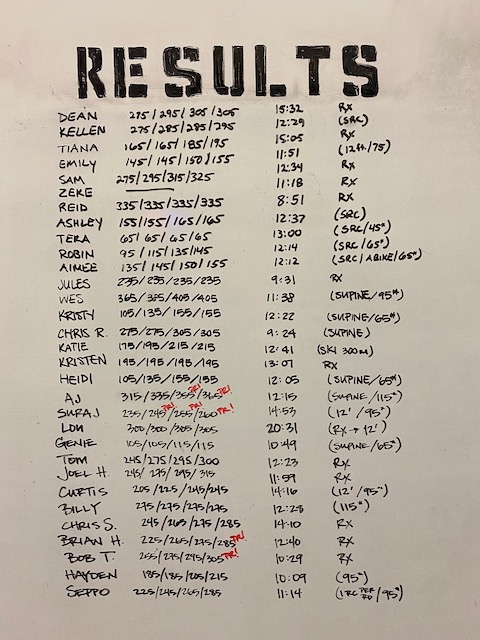 RESULTS
DEAN 275/295/305/305 15:32 RX
KELLEN 275/285/285/295 12:29 (SRC)
TIANA 165/165/185/195 15:05 RX
EMILY 145/145/150/155 11:51 (12ft/75)
SAM 275/295/315/325 12:34 RX
ZEKE 11:18 RX
REID 335/335/335/335 8:51 RX
ASHLEY 155/155/165/165 12:37 (SRC)
TERA 65/65/65/65 13:00 (SRC/45#)
ROBIN 95/115/135/145 12:14 (SRC/65#)
AIMEE 135/145/150/155 12:12 (SRC/ABIKE/65#)
JULES 235/235/235/235 9:31 RX
WES 365/385/405/405 11:38 (SUPINE/95#)
KRISTY 105/135/155/155 12:22 (SUPINE/65#)
CHRIS R. 275/275/305/305 9:24 (SUPINE)
KATIE 175/195/215/215 12:41 (SKI 300m)
KRISTEN 195/195/195/195 13:07 RX
HEIDI 105/135/155/155 12:05 (SUPINE/65#)
AJ 315/335/355 PR!/365 PR! 12:15 (SUPINE/115#)
SURAJ 235/245 PR!/255 PR!/260 PR! 14:53 (12'/95#)
LOU 300/300/305/305 20:31 (RX→12')
GENIE 105/105/115/115 10:49 (SUPINE/65#)
TOM 245/275/295/300 12:23 RX
JOEL H. 245/275/295/315 11:59 RX
CURTIS 205/225/245/245 14:16 (12'/95#)
BILLY 275/275/275/275 12:28 (115#)
CHRIS S. 245/265/275/285 14:10 RX
BRIAN H. 225/265/275/285 PR! 12:40 RX
BOB T. 255/275/295/305 PR! 10:29 RX
HAYDEN 185/185/205/215 10:09 (95#)
SEPPO 225/245/265/285 11:14 (1 RC PER RD/95#)